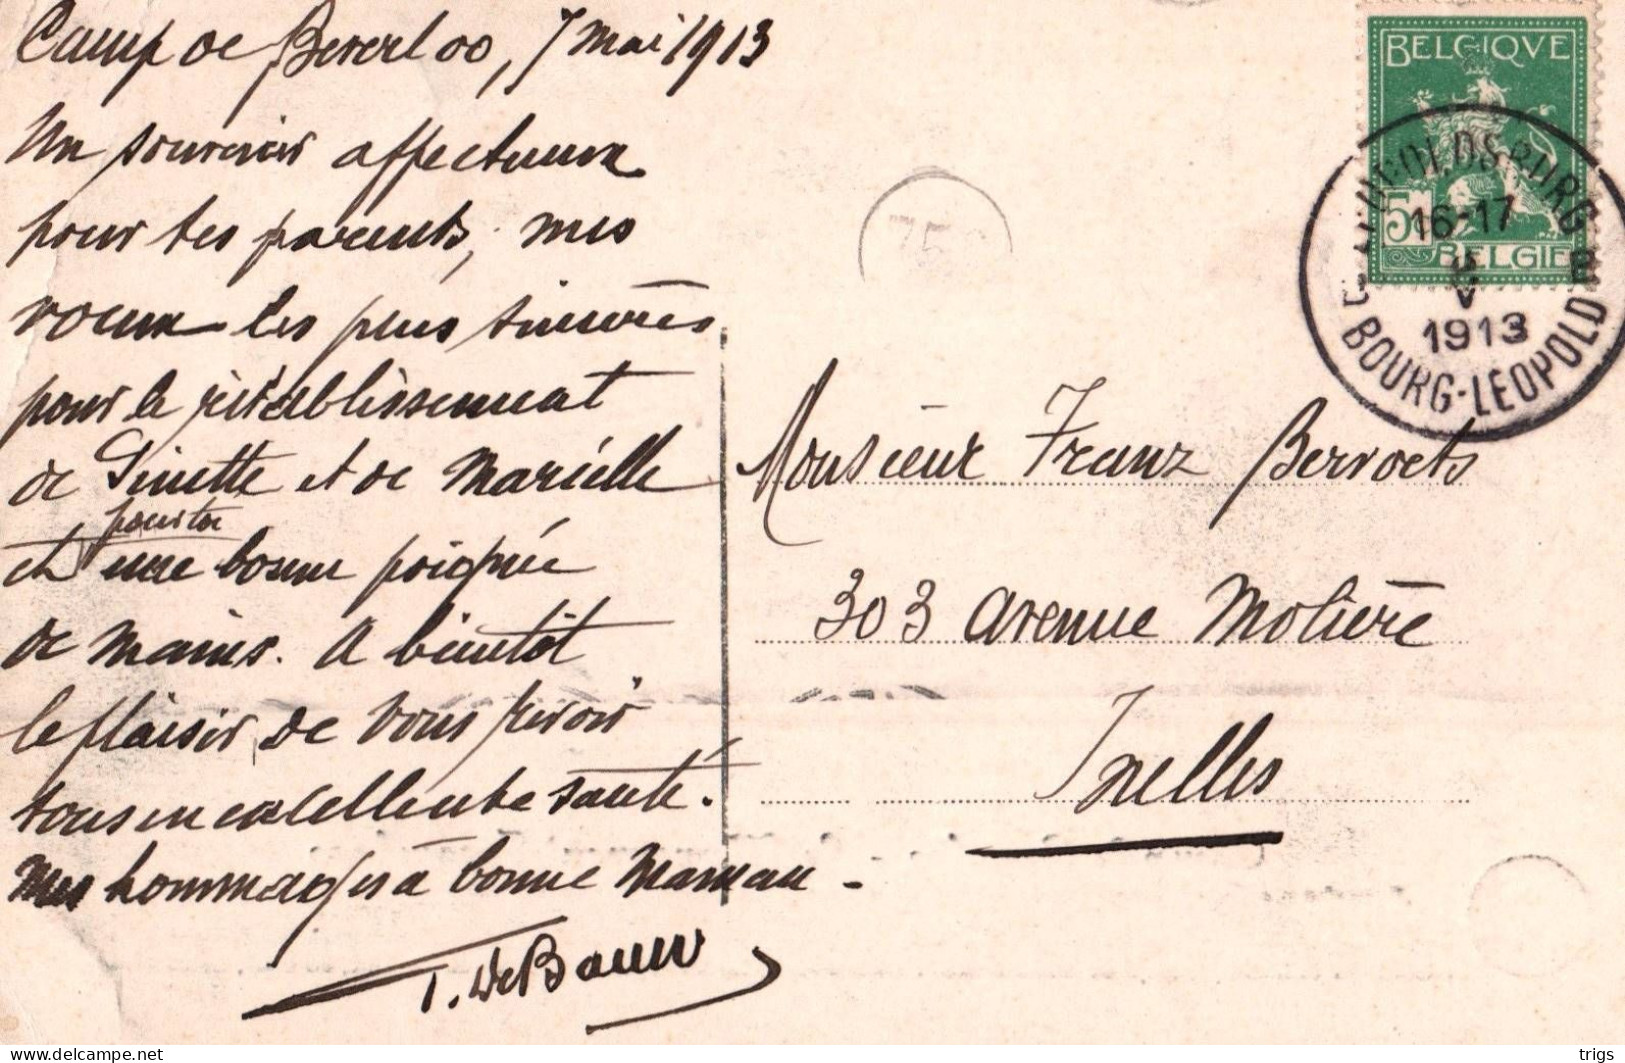 Camp de Beverloo, 7 mai 1913
Un souvenir affectueux
pour tes parents, mes
voeux les plus sincères
pour le rétablissement
de Ginette et de Marielle
pour toi
et une bonne poignée
de mains. A bientôt
le plaisir de vous revoir
tous en excellente santé.
Mes hommages à bonne Maman -
De Bauw
BELGIQVE
5
BELGIE
BOURG-LEOPOLD
16-17
V
1913
75
Monsieur Franz Bervoets
303 avenue Molière
Ixelles
www.delcampe.net
trigs